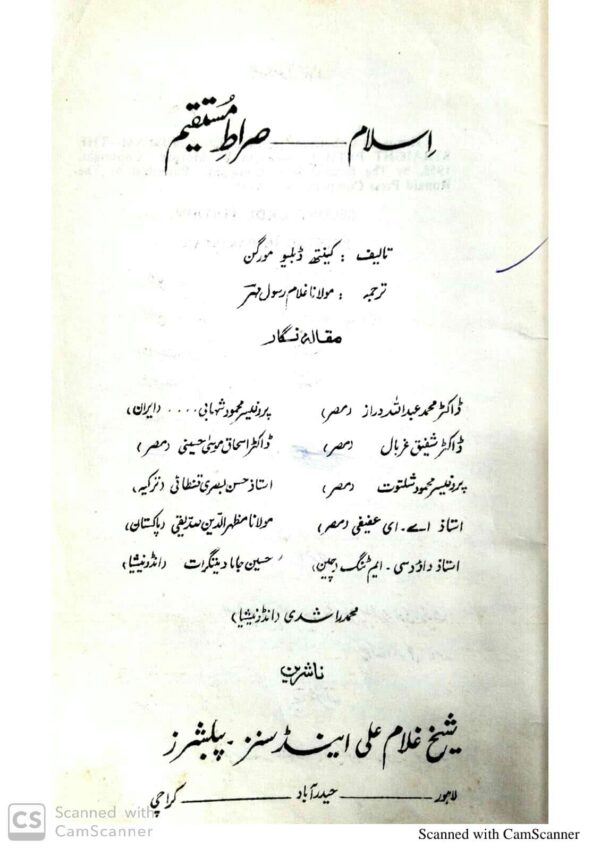 اِسلام ــــــ صراطِ مُستقیم
تالیف : کینتھ ڈبلیو مورگن
ترجمہ : مولانا غلام رسول مہر
مقالہ نگار
ڈاکٹر محمد عبداللہ دراز (مصر) پروفیسر محمود شہابی .... (ایران)
ڈاکٹر شفیق غربال (مصر) ڈاکٹر اسحاق موسیٰ حسینی (مصر)
پروفیسر محمود شلتوت (مصر) استاذ حسن بصری قنطائی (ترکیہ)
استاذ اے۔ ای عفیفی (مصر) مولانا مظہرالدین صدیقی (پاکستان)
استاذ داؤد سی۔ ایم ٹنگ (چین) حسین جایا دیننگرات (انڈونیشیا)
محمد راشدی (انڈونیشیا)
ناشرین
شیخ غلام علی اینڈ سنز۔ پبلشرز
لاہور ــــــ حیدرآباد ــــــ کراچی
CS Scanned with
CamScanner
Scanned with CamScanner